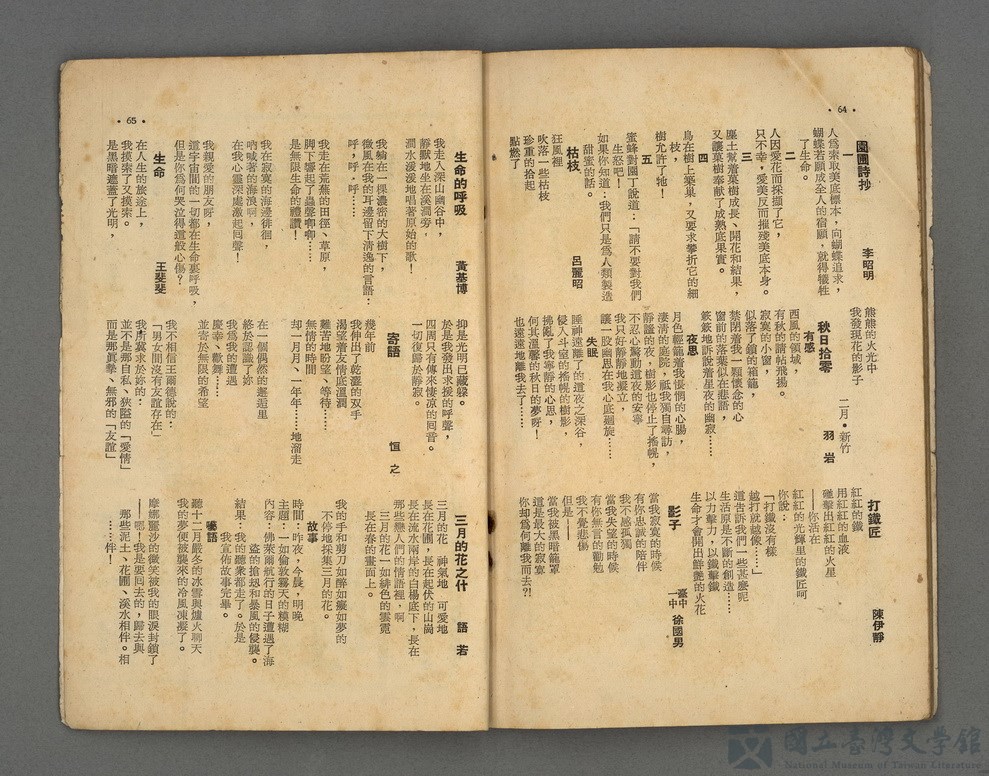 • 64 •
園圃詩抄
李昭明
一
人為索取美底標本，向蝴蝶追求，
蝴蝶若願成全人的宿願，就得犧牲
了生命。
二
人因愛花而採擷了它，
只不幸，愛美反而摧殘美底本身。
三
塵土幫着菓樹成長、開花和結果，
又讓菓樹奉献了成熟底果實。
四
鳥在樹上築巢，又要求攀折它的細
枝，
樹允許了牠！
五
蜜蜂對園丁說：「請不要對我們
生怒吧！
如果你知道：我們只是為人類製造
甜蜜的話。
枯枝
呂麗昭
狂風裡
吹落一些枯枝
珍重的拾起
點燃了
熊熊的火光中
我發現花的影子
二月•新竹
秋日拾零
羽岩
有感
西風的領域，
有秋的請帖飛揚。
寂寞的小窗，
似落了鎖的箱籠，
禁閉着我一顆懷念的心
窗前的落葉似在悲語，
簌簌地訴說着星夜的幽寂……
夜思
月色輕籠着我悵惘的心腸，
淒清的庭院，祗我獨自尋訪，
靜謐的夜，樹影也停止了搖幌，
不忍心驚動這夜的安寧
我只好靜靜地凝立，
讓一股幽思在我心底廻旋……
失眠
睡神遠離了的這夜之深谷，
侵入斗室的搖幌的樹影，
拂亂了我寧靜的心思，
何其溫馨的秋日的夢呀！
也遠遠地離我去了……
打鐵匠
陳伊靜
紅紅的鐵
用紅紅的血液
錘擊出紅紅的火星
——你活在
紅紅的光輝里的鐵匠呵
你說：
「打鐵沒有樣
越打就越像…」
這告訴我們一些甚麼呢
生活原是不斷的創造……
以力擊力，以鐵擊鐵
生命才會開出鮮艷的火花
影子
臺中一中
徐國男
當我寂寞的時候
有你忠誠的陪伴
我不感孤獨
當我失望的時候
有你無言的勸勉
我不覺悲傷
但是——
當我被黑暗籠罩
這是最大的寂寞
你却為何離我而去?!
• 65 •
生命的呼吸
黃基博
我走入深山幽谷中，
靜默地坐在溪澗旁，
澗水淺淺地唱著原始的歌！
我躺在一棵濃密的大樹下，
微風在我的耳邊留下清逸的言語：
呼，呼，呼……
我走在荒蕪的田徑、草原，
脚下響起了蟲聲唧唧……
是無限生命的禮讚！
我在寂寞的海邊徘徊，
吶喊著的海浪啊，
在我心靈深處激起囘聲！
我親愛的朋友呀，
這宇宙間的一切都在生命裏呼吸，
但是你為何哭泣得這般心傷？
生命
王斐斐
在人生的旅途上，
我摸索了又摸索。
是黑暗遮蓋了光明，
抑是光明已藏躲。
於是我發出求援的呼聲，
四周只有傳來悽凉的囘音。
一切復歸於靜寂。
寄語
恒之
幾年前
我伸出了乾澀的双手
渴望着友情底溫潤
艱苦地盼望、等待……
無情的時間
却一月月、一年年……地溜走
在一個偶然的邂逅里
終於認識了妳
我為我的遭遇
慶幸、歡舞……
並寄於無限的希望
我不相信王爾德說的：
「男女間沒有友誼存在」
我所冀求於妳的：
並不是那自私、狹隘的「愛情」
而是那真摯、無邪的「友誼」
三月的花之什
語若
三月的花 神氣地 可愛地
長在花圃，長在起伏的山崗
長在流水兩岸的白楊底下，長在
那些戀人們的情語裡，啊
三月的花一如緋色的雲霓
長在春的畫面上。
我的手和剪刀如醉如癡如夢的
不停地採集三月的花。
故事
時間：昨夜，今晨，明晚
主題：一如倫敦霧天的糢糊
內容：佛萊爾航行的日子遭遇了海
盜的偷刼和暴風的侵襲。
結果：我的聽衆都走了。於是
我宣佈故事完畢。
囈語
聽十二月嚴冬的冰雪與爐火聊天
我的夢便被襲來的冷風凍凝了。
摩娜麗沙的微笑被我的眼淚封鎖了
——嗯！我是要囘去的，歸去與
那些泥土、花圃、溪水相伴。相
……伴！
國立臺灣文學館
National Museum of Taiwan Literature